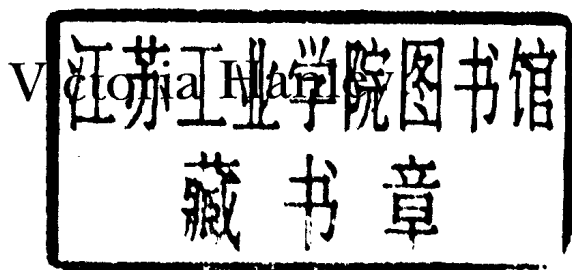 Victoria Hanley
江苏工业学院图书馆
藏书章